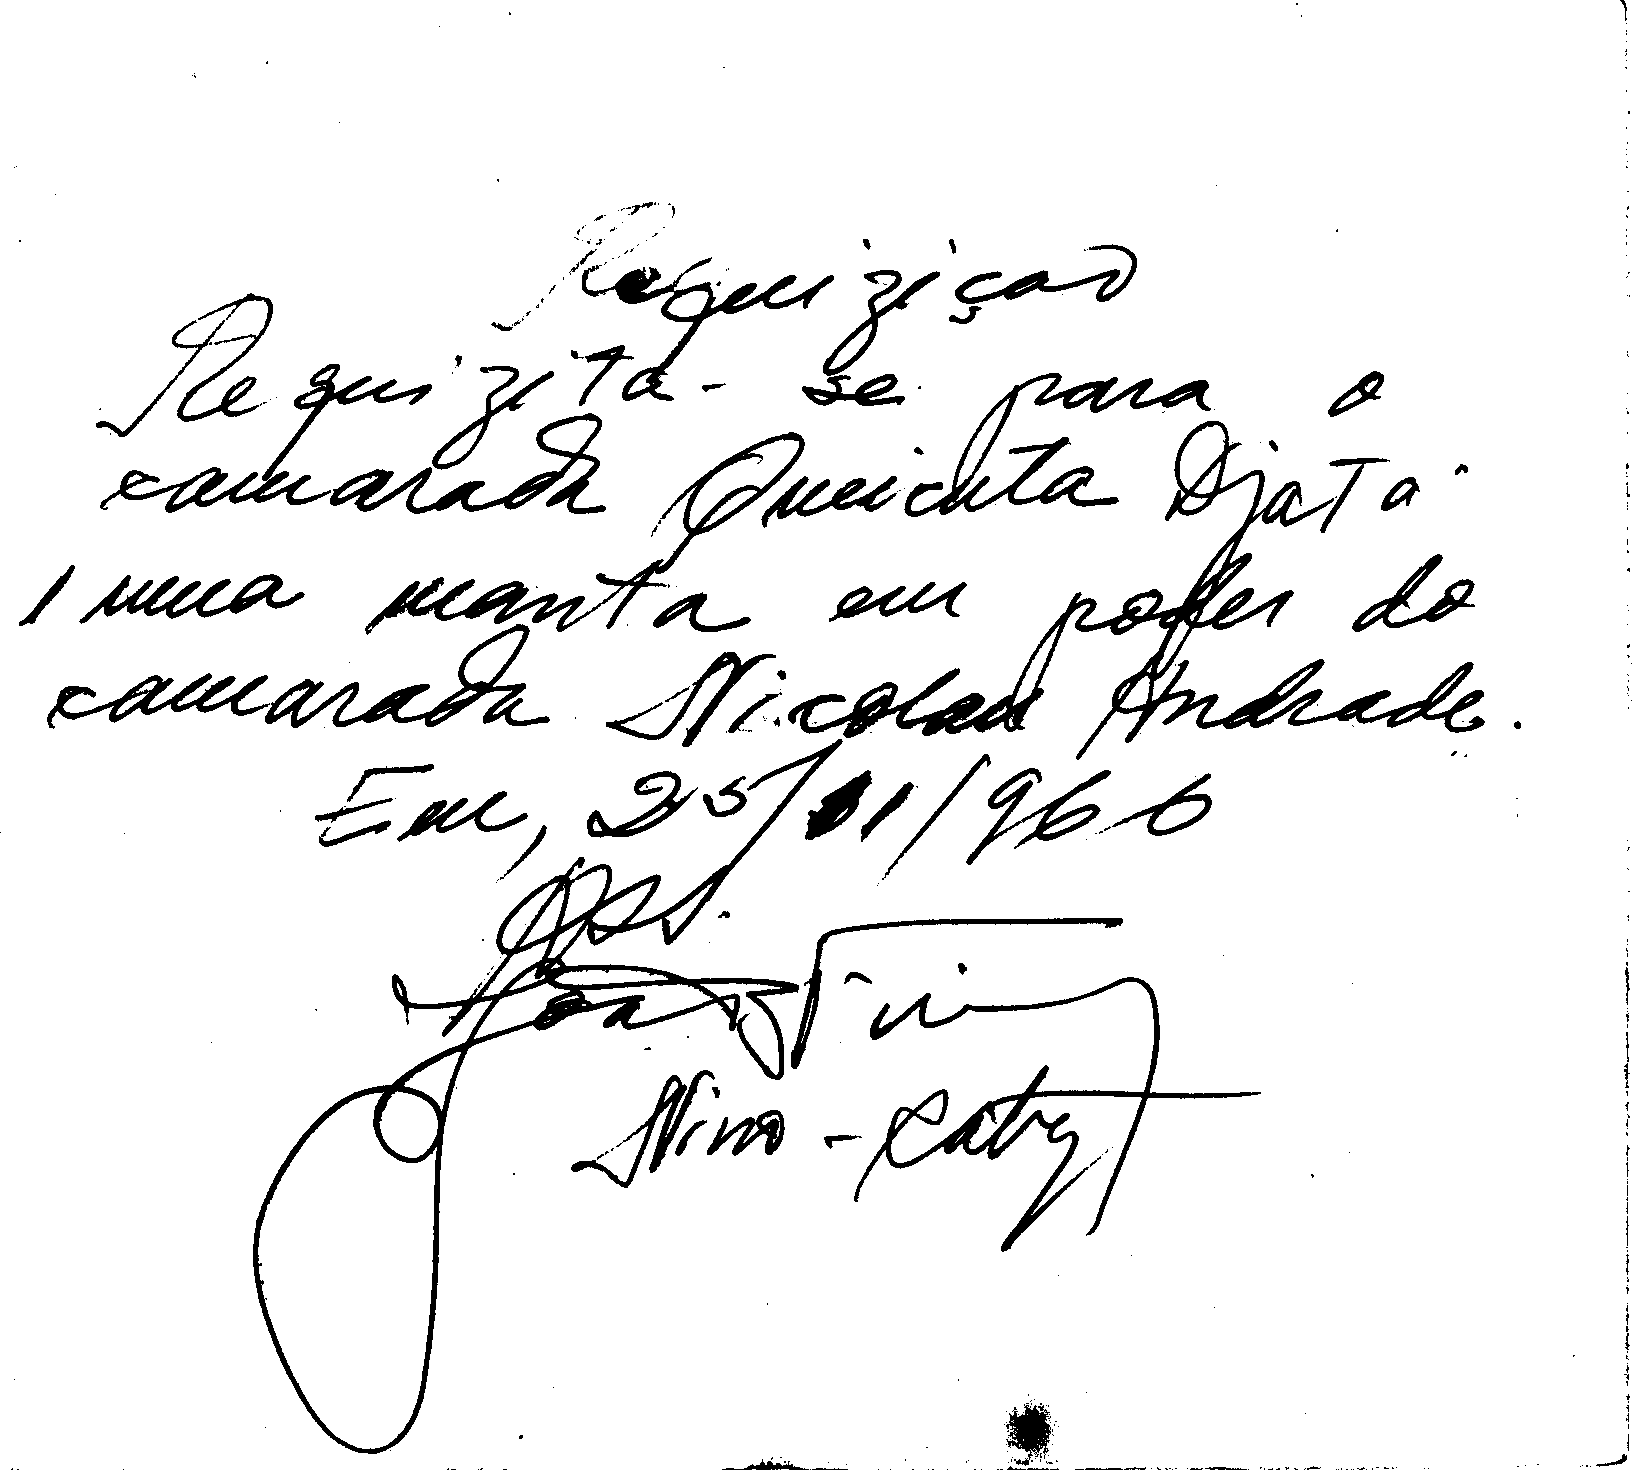 Requizição
Requizita-se para o
camarada Queicuta Djatá
1 uma manta em poder do
camarada Nicolau Andrade.
Em, 25/11/966
Nino - Caby